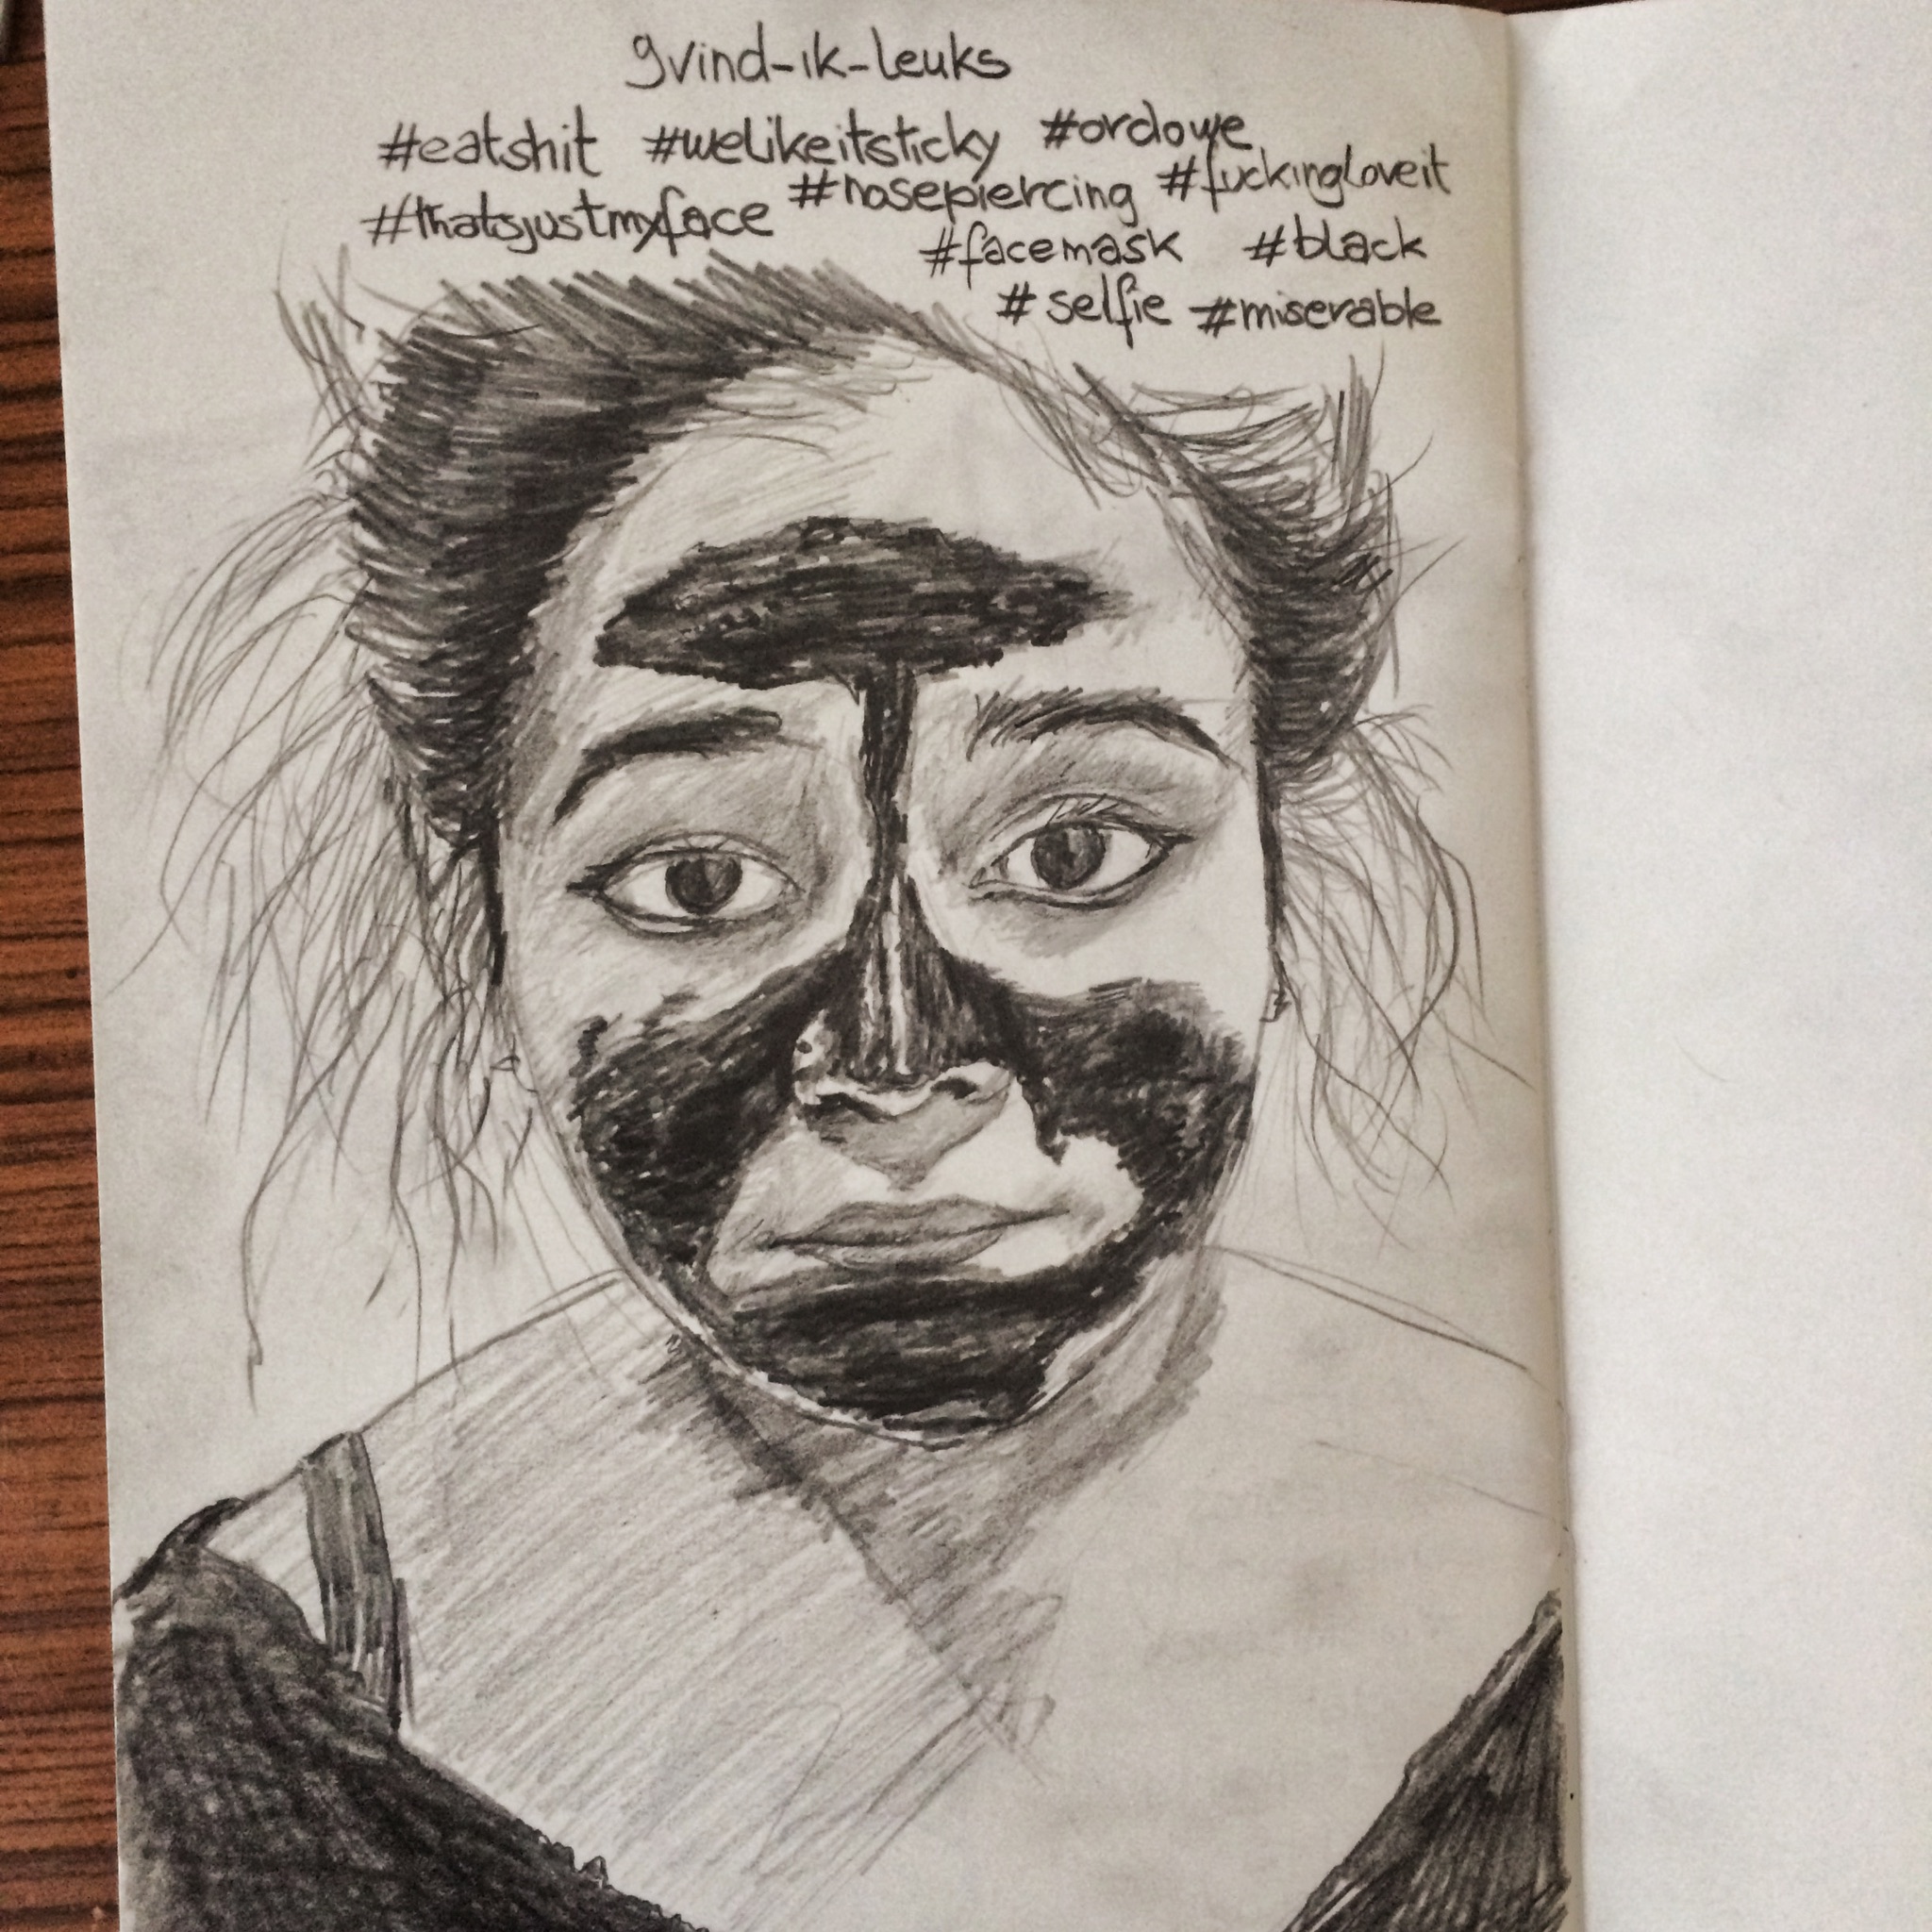 gvind-ik-leuks
#eatshit #welikeitsticky #ordowe
#thatsjustmyface #nosepiercing #fuckingloveit
#facemask #black
#selfie #miserable